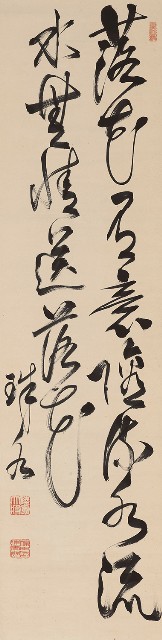 落花有意隨流水流
水無情送落花